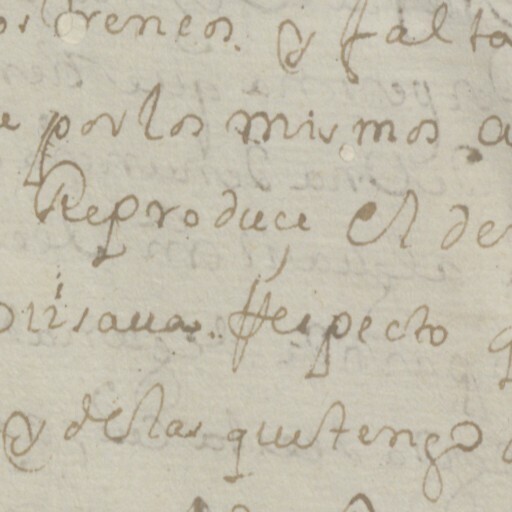 renes. y falta
por los mismos a
Reproduce el de
Respecto
y delas que tengo